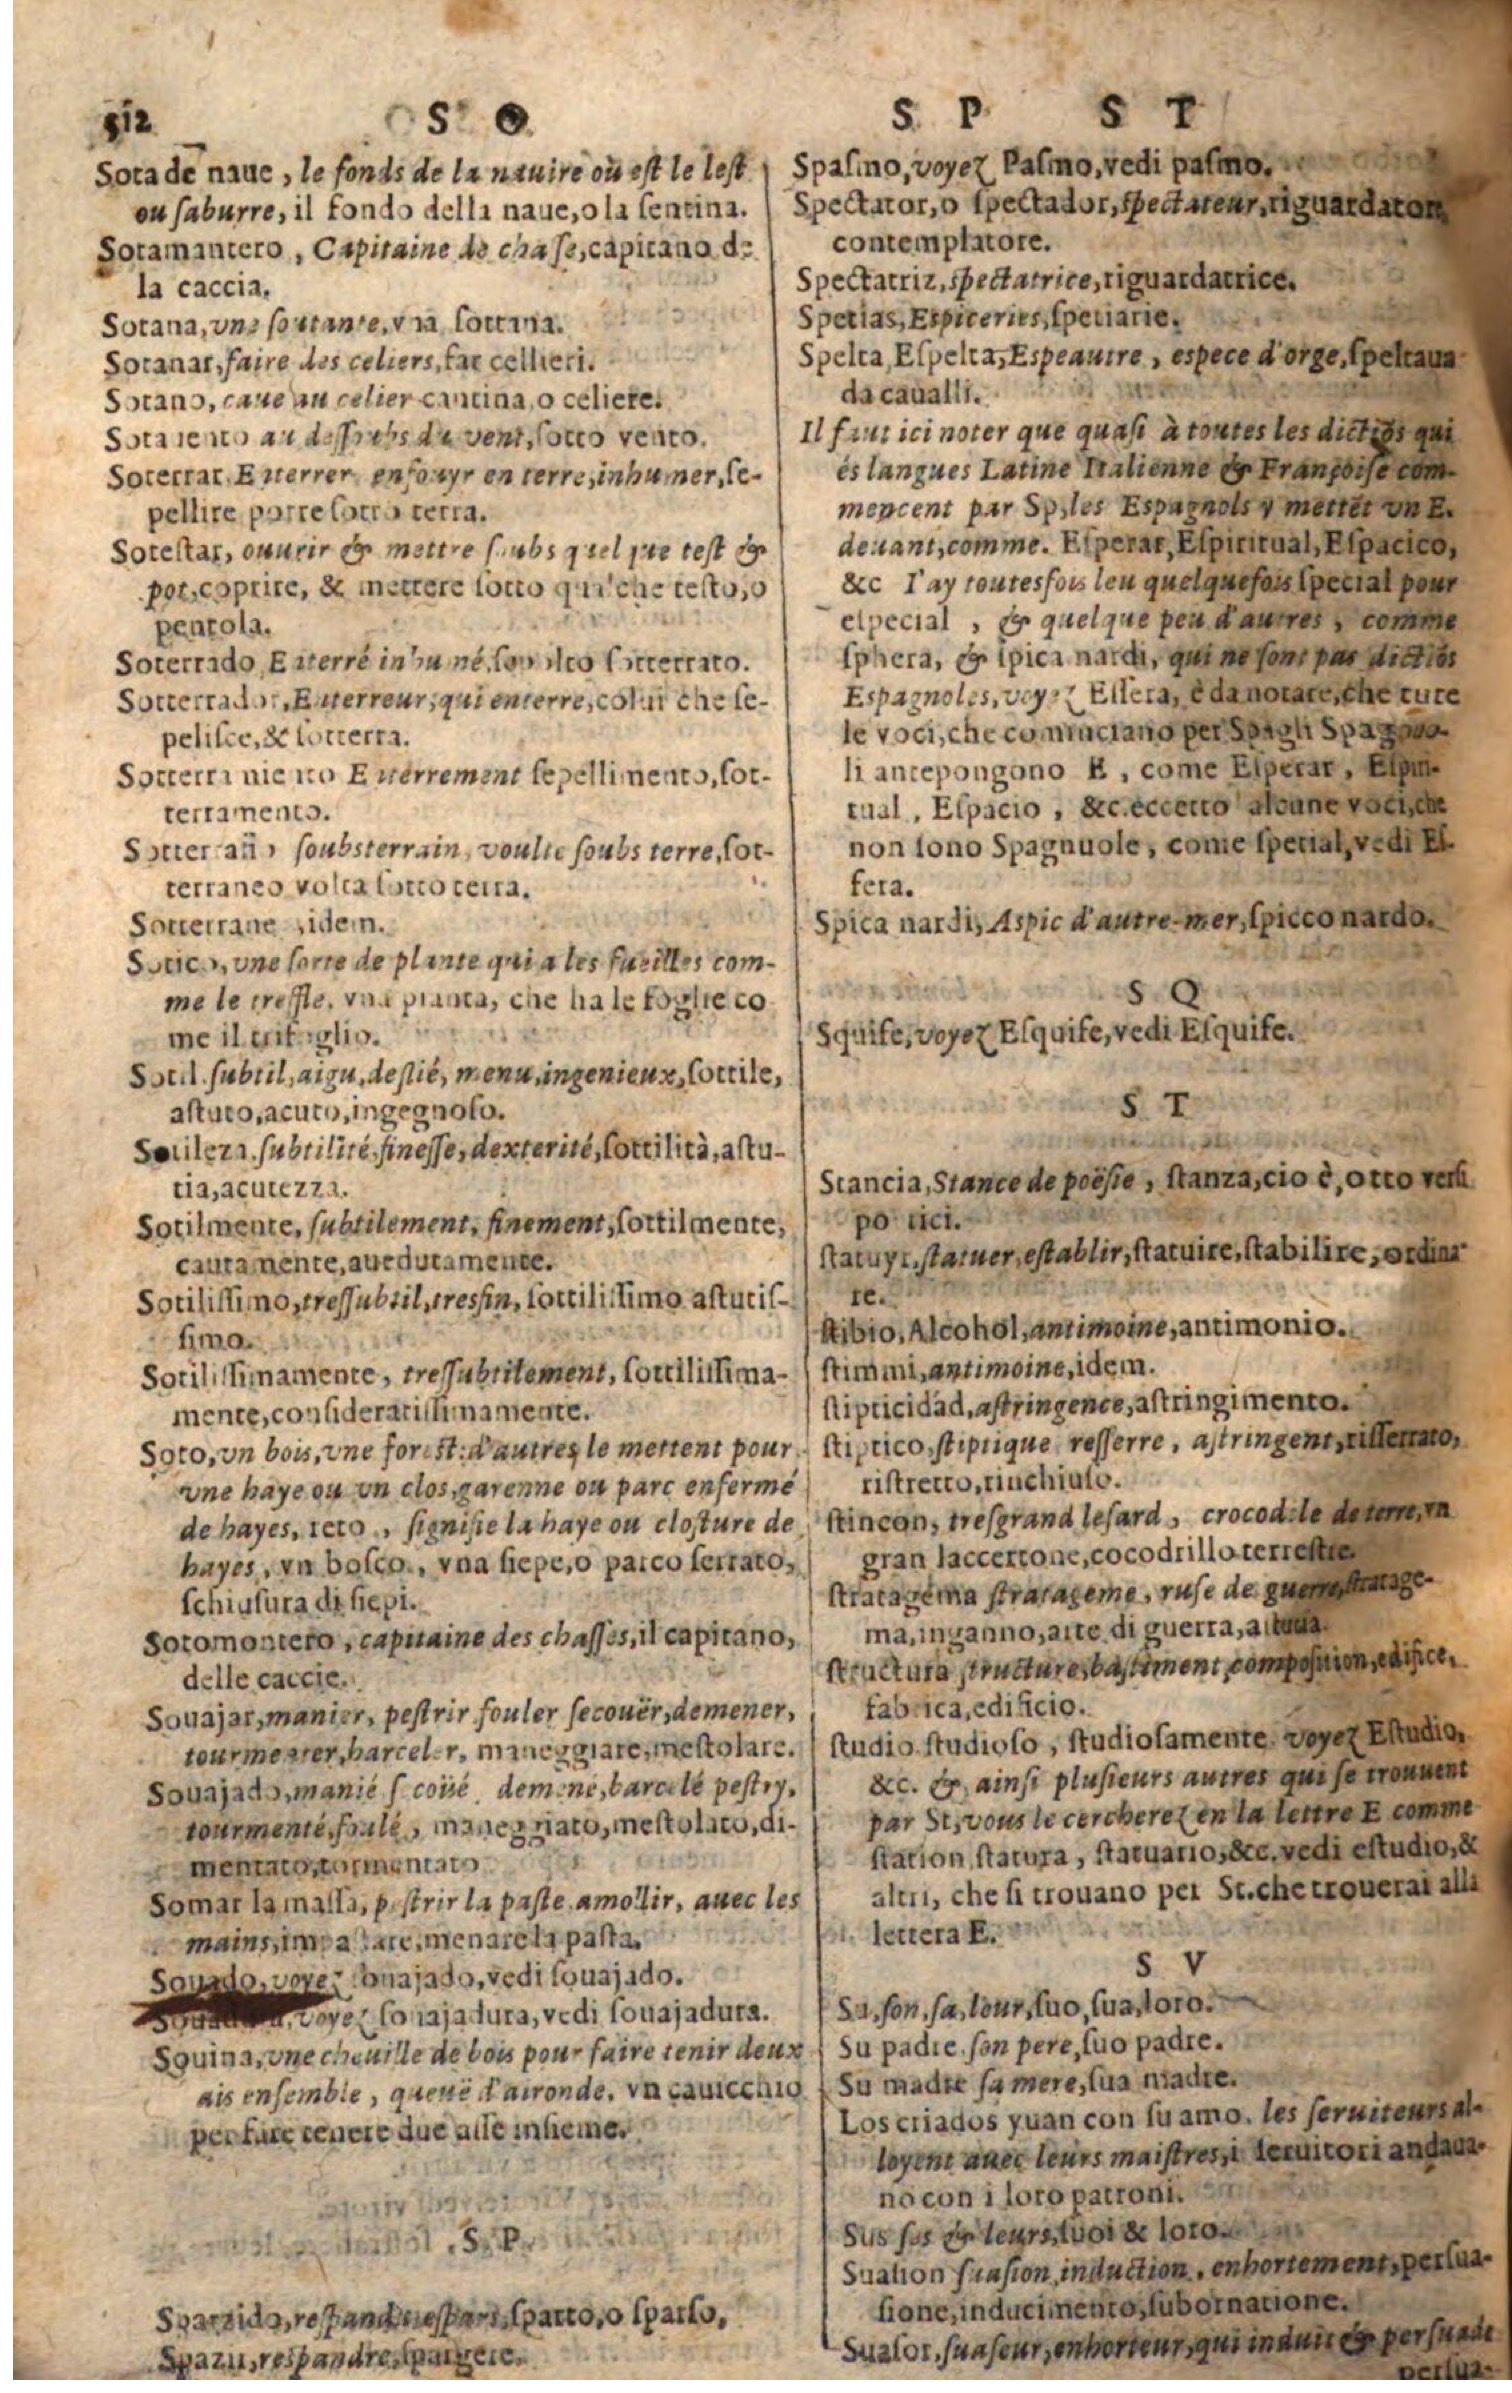 512 S O
Sota de naue, le fonds de la nauire où est le lest
ou saburre, il fondo della naue, o la sentina.
Sotamantero, Capitaine de chasse, capitano de
la caccia.
Sotana, vne soutante, vna sottana.
Sotanar, faire des celiers, far cellieri.
Sotano, caue au celier cantina, o celiere.
Sotauento au dessoubs du vent, sotto vento.
Soterrar Enterrer enfouyr en terre, inhumer, se-
pellire porre sotto terra.
Sotestar, ouurir & mettre soubs quelque test &
pot, coprire, & mettere sotto qualche testo, o
pentola.
Soterrado Enterré inhumé, sepolto sotterrato.
Sotterrador, Enterreur, qui enterre, colui che se-
pelisce, & sotterra.
Sotterramiento Enterrement sepellimento, sot-
terramento.
Sotterraño, soubsterrain, voulte soubs terre, sot-
terraneo volta sotto terra.
Sotterrane, idem.
Sotico, vne sorte de plante qui a les fueilles com-
me le treffle. vna pianta, che ha le foglie co
me il trifoglio.
Sotil subtil, aigu, deslié, menu, ingenieux, sottile,
astuto, acuto, ingegnoso.
Sotileza subtilité, finesse, dexterité, sottilità, astu-
tia, acutezza.
Sotilmente, subtilement, finement, sottilmente,
cautamente, auedutamente.
Sotilissimo, tressubtil, tresfin, sottilissimo astutis-
simo.
Sotilissimamente, tressubtilement, sottilissima-
mente, consideratissimamente.
Soto, vn bois, vne forest: d'autres le mettent pour
vne haye ou vn clos, garenne ou parc enfermé
de hayes, seto, signifie la haye ou closture de
hayes, vn bosco, vna siepe, o parco serrato,
schiusura di siepi.
Sotomontero, capitaine des chasses, il capitano,
delle caccie.
Souajar, manier, pestrir fouler secouër, demener,
tourmenter, harceler, maneggiare, mestolare.
Souajado, manié secoüé demené, harcelé pestry,
tourmenté, foulé, maneggiato, mestolato, di-
mentato, tormentato
Somar la massa, pestrir la paste amollir, auec les
mains, impastare, menare la pasta.
Souado, voyez souajado, vedi souajado.
voyez souajadura, vedi souajadura.
Souina, vne cheuille de bois pour faire tenir deux
ais ensemble, queuë d'aironde. vn cauicchio
per fare tenere due asse insieme.
S P
Sparzido, respandu espars, sparto, o sparso,
Spazir, respandre, spargere.
S P S T
Spasmo, voyez Pasmo, vedi pasmo.
Spectator, o spectador, spectateur, riguardatore
contemplatore.
Spectatriz, spectatrice, riguardatrice.
Spetias, Espiceries, spetiarie.
Spelta Espelta, Espeautre, espece d'orge, speltaua
da caualli.
Il faut ici noter que quasi à toutes les dictiõs qui
és langues Latine Italienne & Françoise com-
mencent par Sp, les Espagnols y mettẽt vn E.
deuant, comme. Esperar, Espiritual, Espacico,
&c I'ay toutesfois leu quelquefois special pour
especial, & quelque peu d'autres, comme
sphera, & spica nardi, qui ne sont pas dictiõs
Espagnoles, voyez Essera, è da notare, che tute
le voci, che cominciano per Sp agli Spagnuo-
li antepongono E, come Esperar, Espiri-
tual, Espacio, &c. eccetto alcune voci, che
non sono Spagnuole, come spetial, vedi Es-
fera.
Spica nardi, Aspic d'autre-mer, spicco nardo.
S Q
Squife, voyez Esquife, vedi Esquife.
S T
Stancia, Stance de poësie, stanza, cio è, otto versi
poetici.
statuyr, statuer, establir, statuire, stabilire, ordina-
re.
stibio, Alcohol, antimoine, antimonio.
stimmi, antimoine, idem.
stipticidad, astringence, astringimento.
stiptico, stiptique resserre, astringent, risserrato,
ristretto, rinchiuso.
stincon, tresgrand lesard, crocodile de terre, vn
gran laccertone, cocodrillo terrestre.
stratagema stratageme, ruse de guerre, stratage-
ma, inganno, arte di guerra, astutia.
structura structure, bastiment, composition, edifice,
fabrica, edificio.
studio studioso, studiosamente voyez Estudio,
&c. & ainsi plusieurs autres qui se trouuent
par St, vous le chercherez en la lettre E comme
station, statura, statuario, &c. vedi estudio, &
altri, che si trouano per St. che trouerai alla
lettera E.
S V
Su, son, sa, leur, suo, sua, loro.
Su padre son pere, suo padre.
Su madre sa mere, sua madre.
Los criados yuan con su amo. les seruiteurs al-
loyent auec leurs maistres, i seruitori andaua-
no con i loro patroni.
Sus ses & leurs, suoi & loro.
Suasion suasion, induction, enhortement, persua-
sione, inducimento, subornatione.
Suasor, suaseur, enhorteur, qui induit & persuade
persua-